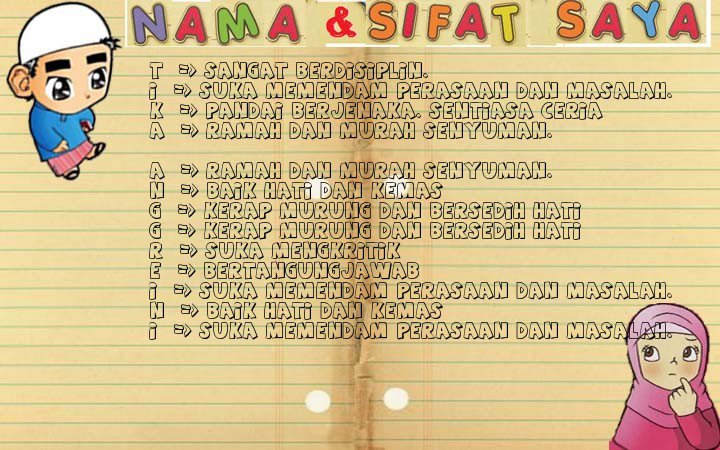 NAMA & SIFAT SAYA
T => SANGAT BERDISIPLIN.
I => SUKA MEMENDAM PERASAAN DAN MASALAH.
K => PANDAI BERJENAKA. SENTIASA CERIA
A => RAMAH DAN MURAH SENYUMAN.
A => RAMAH DAN MURAH SENYUMAN.
N => BAIK HATI DAN KEMAS
G => KERAP MURUNG DAN BERSEDIH HATI
G => KERAP MURUNG DAN BERSEDIH HATI
R => SUKA MENGKRITIK
E => BERTANGUNGJAWAB
I => SUKA MEMENDAM PERASAAN DAN MASALAH.
N => BAIK HATI DAN KEMAS
I => SUKA MEMENDAM PERASAAN DAN MASALAH.